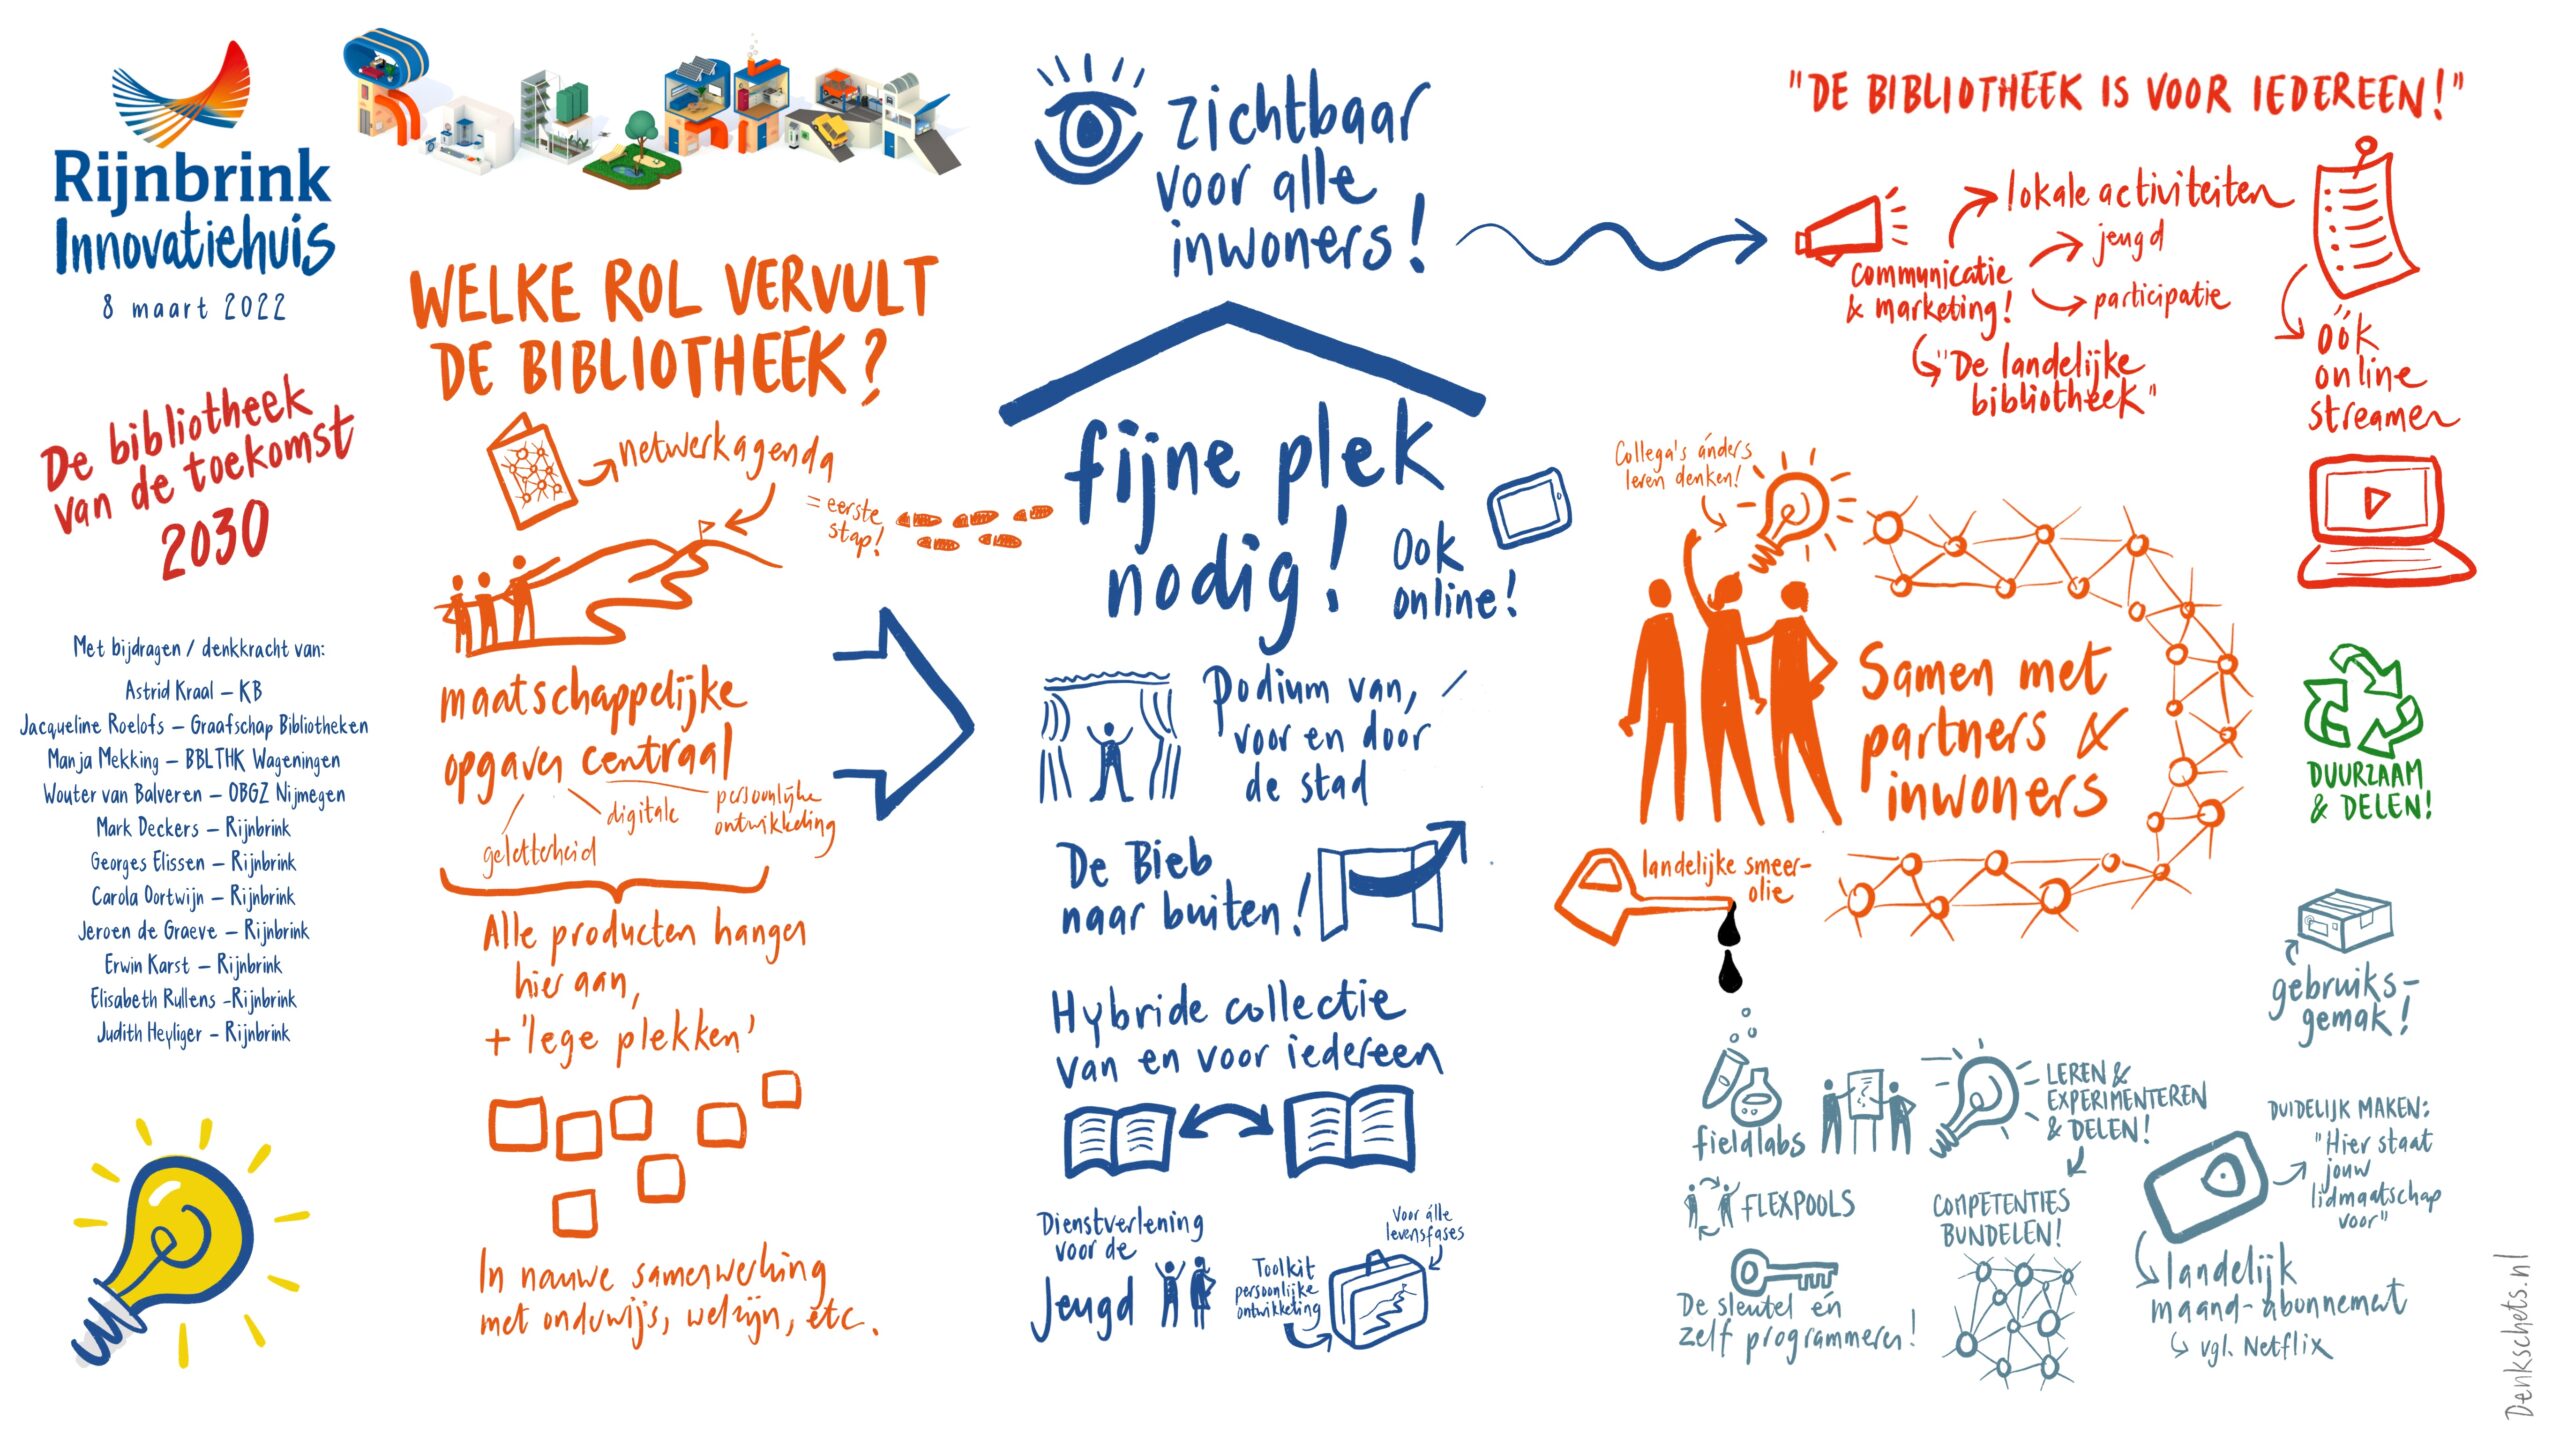 Rijnbrink
Innovatiehuis
8 maart 2022
De bibliotheek
van de toekomst
2030
Met bijdragen / denkkracht van:
Astrid Kraal – KB
Jacqueline Roelofs – Graafschap Bibliotheken
Manja Mekking – BBLTHK Wageningen
Wouter van Balveren – OBGZ Nijmegen
Mark Deckers – Rijnbrink
Georges Elissen – Rijnbrink
Carola Oortwijn – Rijnbrink
Jeroen de Graeve – Rijnbrink
Erwin Karst – Rijnbrink
Elisabeth Rullens -Rijnbrink
Judith Heyliger – Rijnbrink
RIJNBRINK
WELKE ROL VERVULT
DE BIBLIOTHEEK?
netwerkagenda
= eerste
stap!
maatschappelijke
opgaven centraal
geletterheid
digitale
persoonlijke
ontwikkeling
Alle producten hangen
hier aan,
+ 'lege plekken'
In nauwe samenwerking
met onderwijs, welzijn, etc.
zichtbaar
voor alle
inwoners!
fijne plek
nodig!
Ook
online!
Podium van,
voor en door
de stad
De Bieb
naar buiten!
Hybride collectie
van en voor iedereen
Dienstverlening
voor de
Jeugd
Toolkit
persoonlijke
ontwikkeling
Voor álle
levensfases
"DE BIBLIOTHEEK IS VOOR IEDEREEN!"
communicatie
& marketing!
lokale activiteiten
jeugd
participatie
"De landelijke
bibliotheek"
óók
online
streamen
Collega's ánders
leren denken!
Samen met
partners &
inwoners
landelijke smeer-
olie
DUURZAAM
& DELEN!
gebruiks-
gemak!
fieldlabs
LEREN &
EXPERIMENTEREN
& DELEN!
FLEXPOOLS
COMPETENTIES
BUNDELEN!
De sleutel én
zelf programmeren!
DUIDELIJK MAKEN:
"Hier staat
jouw
lidmaatschap
voor"
landelijk
maand-abonnement
vgl. Netflix
Denkschets.nl